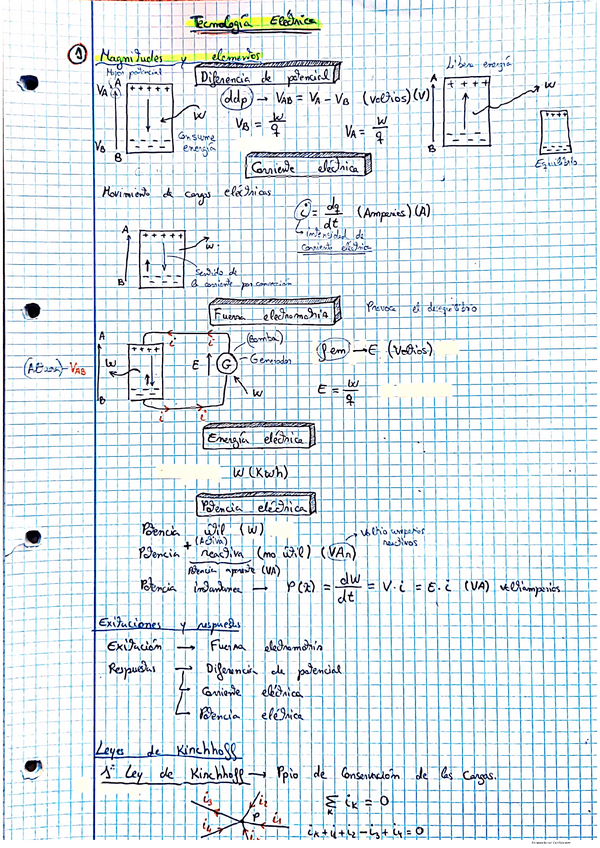 Tecnología Eléctrica
1 Magnitudes y elementos
Mayor potencial
Diferencia de potencial
Libera energía
ddp → VAB = VA - VB (Voltios) (V)
VB = W/q
VA = W/q
VA A
+ + + + +
W
Consume energía
VB B
A
+ + + +
W
B
++++
Equilibrio
Corriente eléctrica
Movimiento de cargas eléctricas
i = dq/dt (Amperios) (A)
intensidad de corriente eléctrica
A
+ + + + +
W
B
Sentido de
la corriente por convención
Fuerza electromotriz
Provoca el desequilibrio
A
i i
(Bomba)
+ + + +
VAB
W
E
G
Generador
W
B
i i
fem → E (Voltios)
E = W/q
Energía eléctrica
W (Kwh)
Potencia eléctrica
Potencia útil (W)
(Activa)
+
Potencia reactiva (no útil) (VAr)
Voltio amperios reactivos
Potencia aparente (VA)
Potencia instantanea → P(t) = dW/dt = V·i = E·i (VA) voltiamperios
Exitaciones y respuestas
Exitación → Fuerza electromotriz
Respuestas → Diferencia de potencial
Corriente eléctrica
Potencia eléctrica
Leyes de Kirchhoff
1ª Ley de Kirchhoff → Ppio de Conservación de las Cargas.
i3 i2
P i1
i4
Σ iK = 0
K
iK + i1 + i2 - i3 + i4 = 0